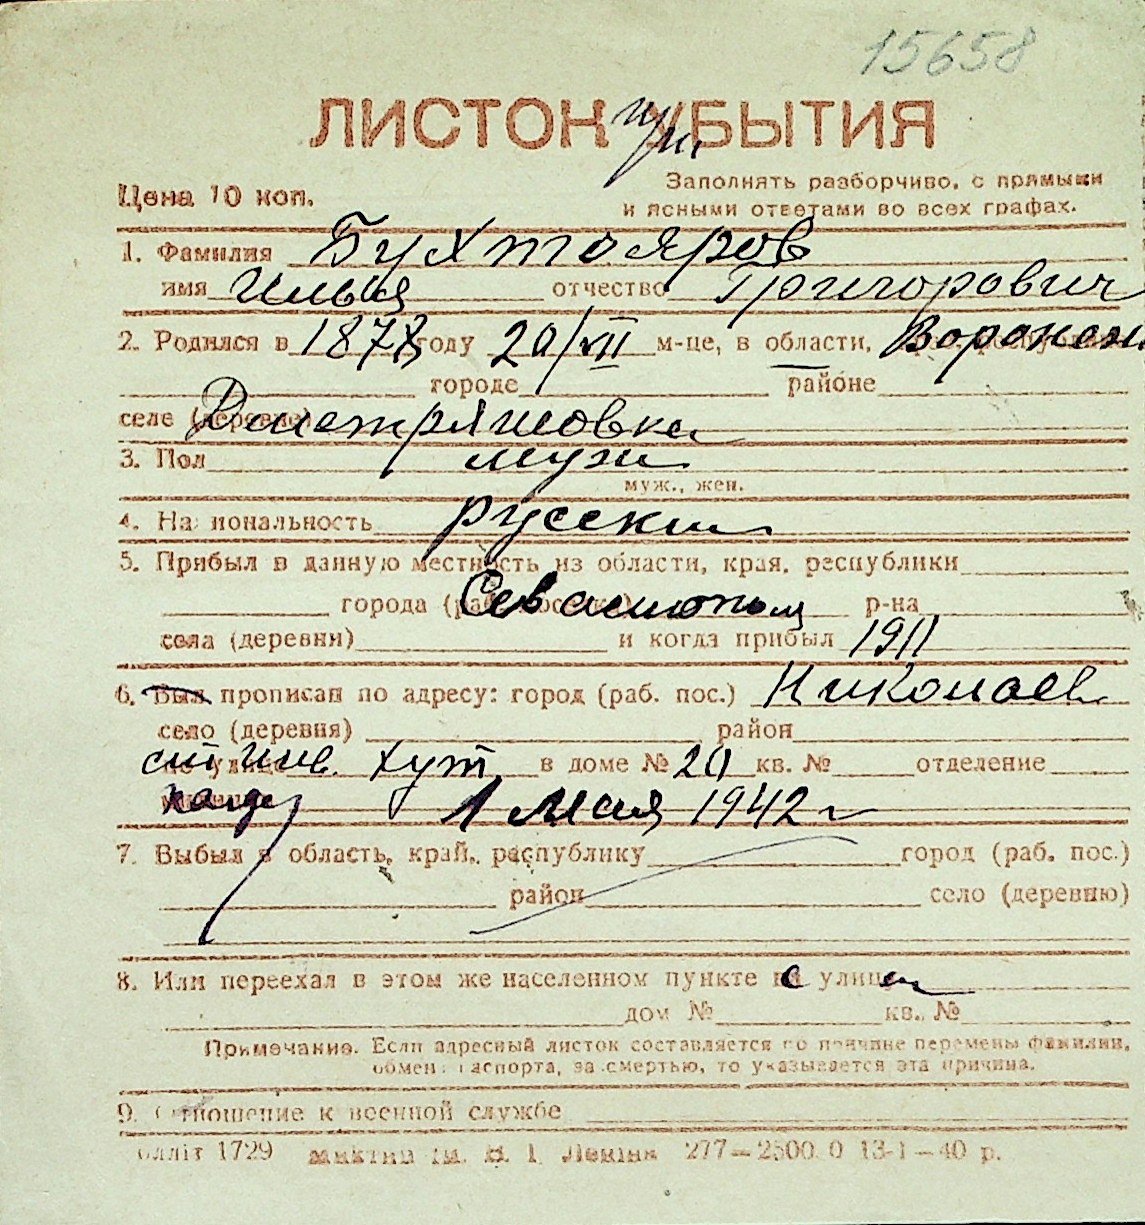 15658
ЛИСТОК УБЫТИЯ
при
Цена 10 коп.
Заполнять разборчиво, с прямыми
и ясными ответами во всех графах.
1. Фамилия Бухтояров
имя Илья отчество Григорович
2. Родился в 1878 году 20/VII м-це, в области, Воронеж
городе районе
селе (деревне) Дметряшовка
3. Пол муж
муж., жен.
4. Национальность русский
5. Прибыл в данную местность из области, края, республики
города (раб. поселка) Севастополя р-на
села (деревни) и когда прибыл 1911
6. Был прописан по адресу: город (раб. пос.) Николаев
село (деревня) район
по улице хут в доме № 20 кв. № отделение
1 Мая 1942 г
7. Выбыл в область, край, республику город (раб. пос.)
район село (деревню)
8. Или переехал в этом же населенном пункте с улицы
дом № кв. №
Примечание. Если адресный листок составляется по причине перемены фамилии,
обмена паспорта, за смертью, то указывается эта причина.
9. Отношение к военной службе
1729 ім. В. І. Леніна 277—2500.0 13-1—40 р.